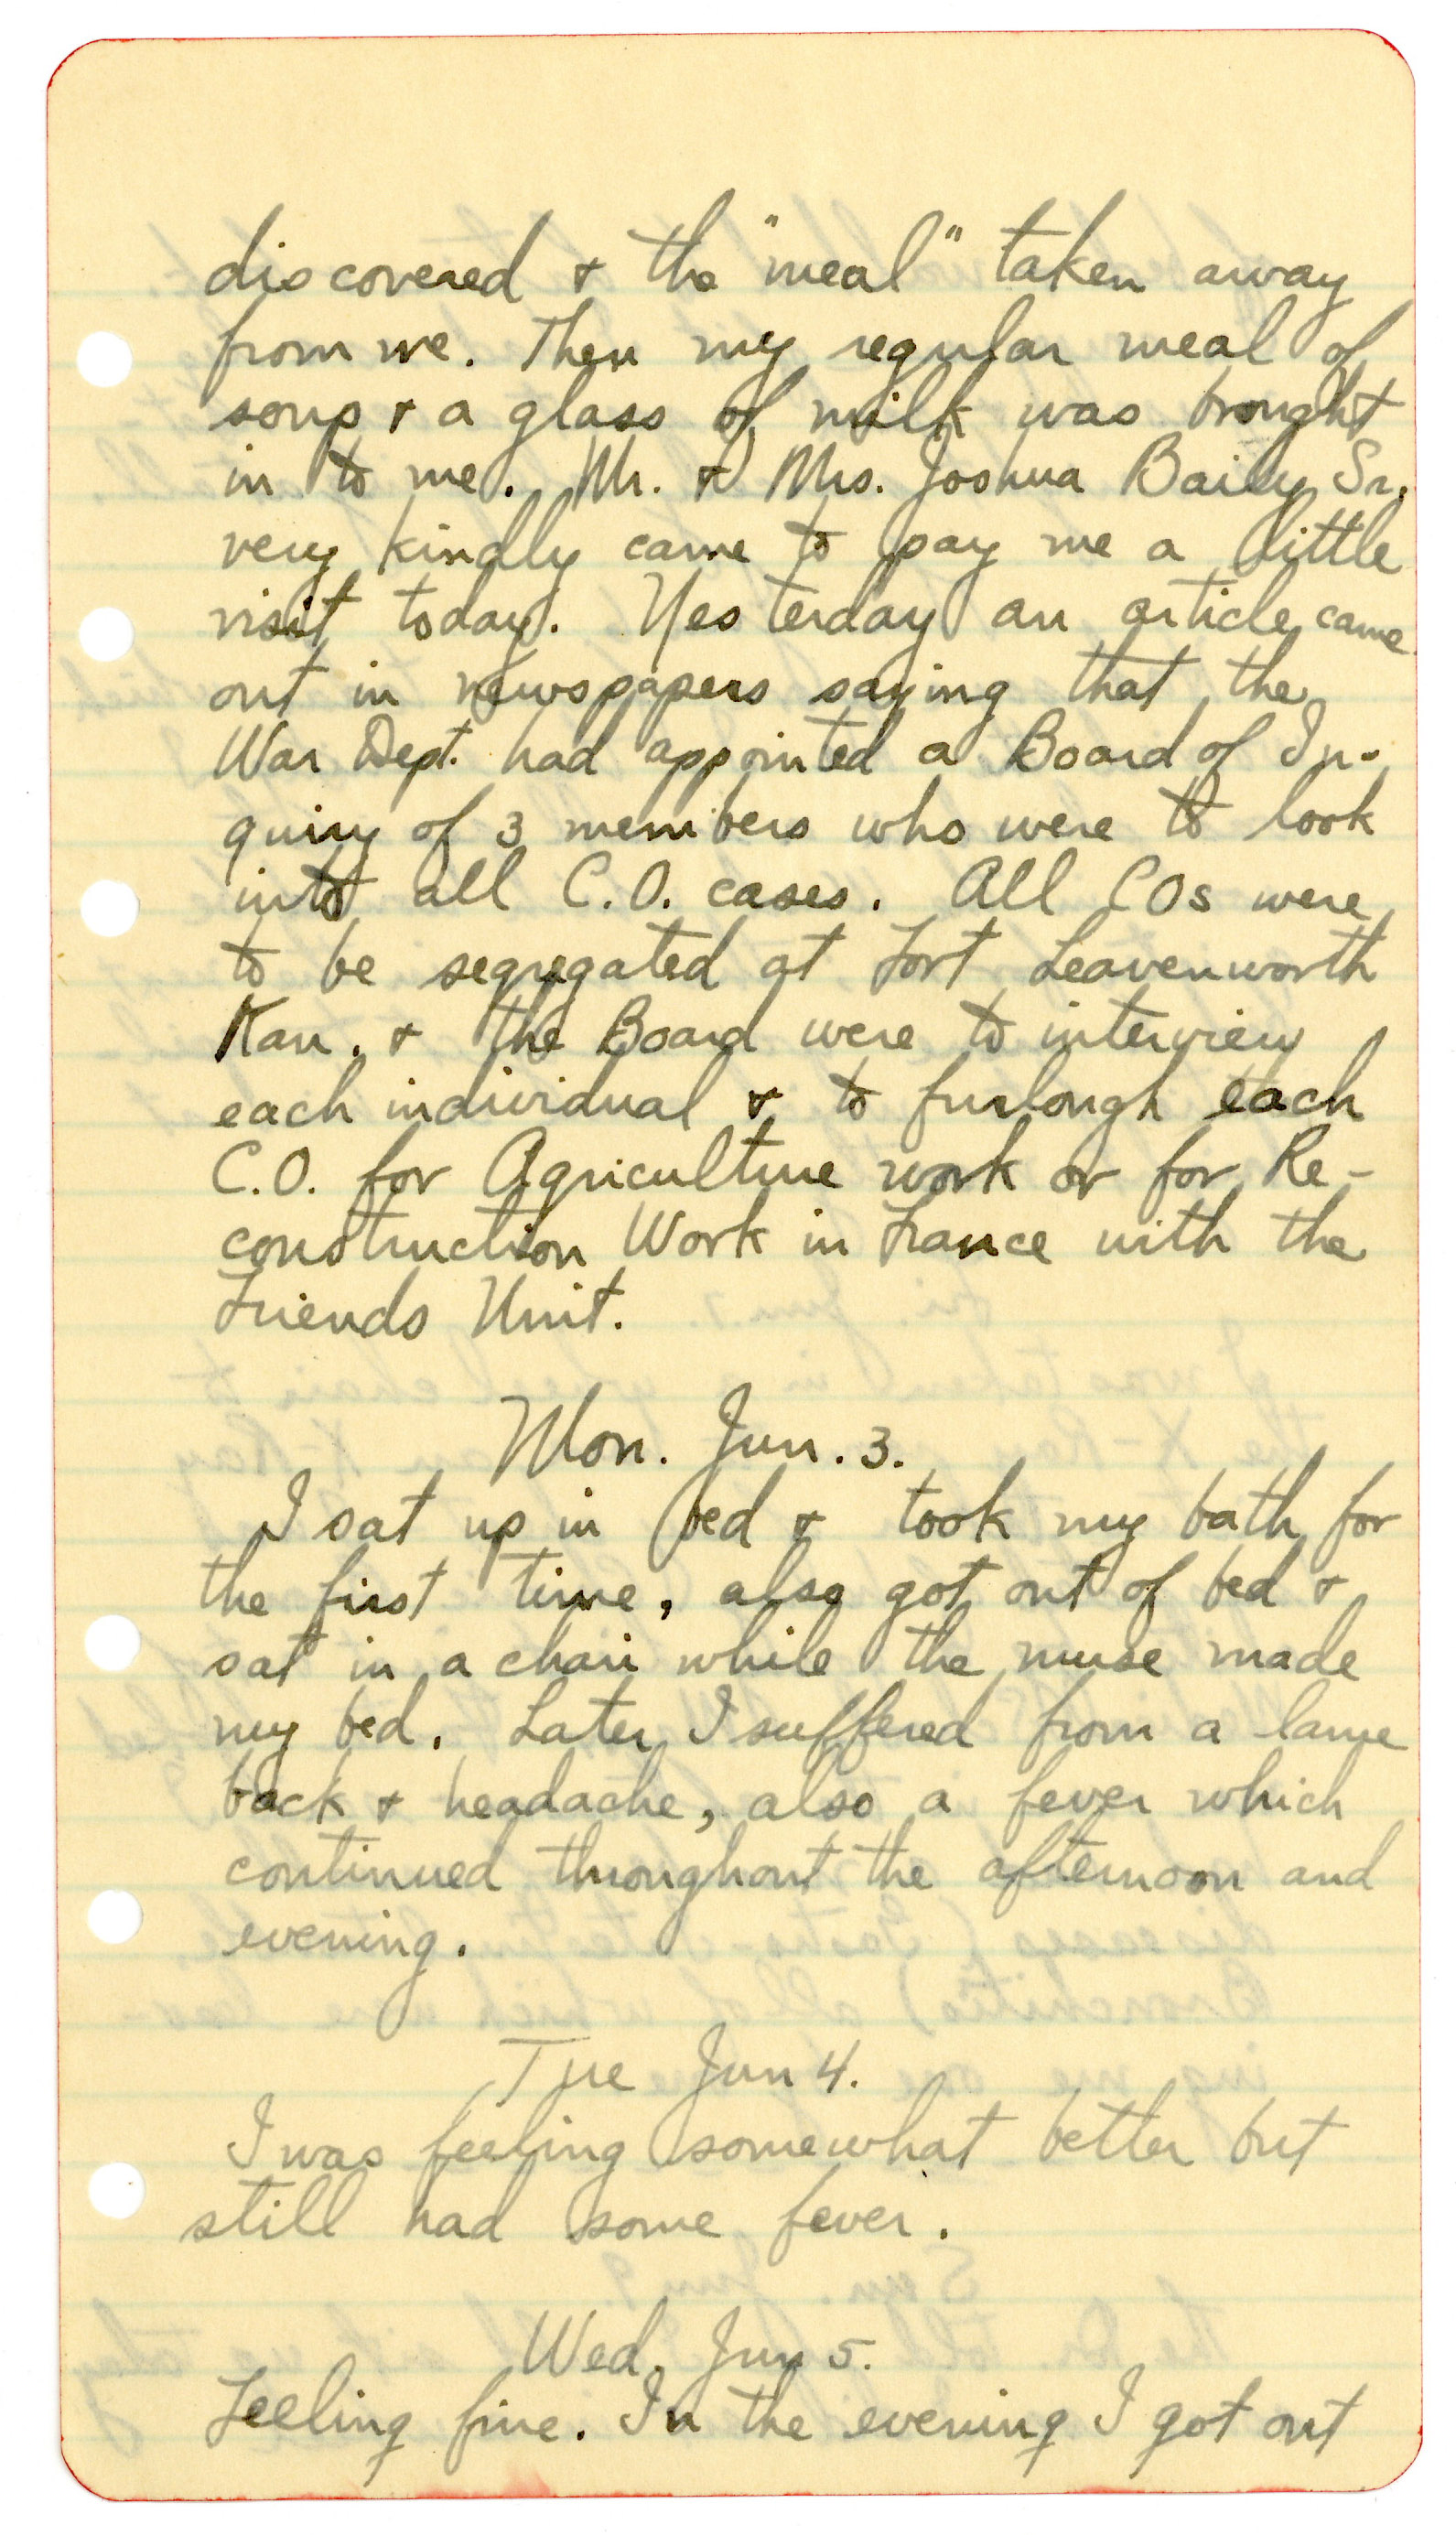 discovered & the "meal" taken away
from me. Then my regular meal of
soup & a glass of milk was brought
in to me. Mr. & Mrs. Joshua Baily Sr.
very kindly came to pay me a little
visit today. Yesterday an article came
out in newspapers saying that the
War Dept. had appointed a Board of In-
quiry of 3 members who were to look
into all C.O. cases. All COs were
to be segregated at Fort Leavenworth
Kan. & the Board were to interview
each individual & to furlough each
C.O. for Agriculture work or for Re-
construction Work in France with the
Friends Unit.
Mon. Jun. 3.
I sat up in bed & took my bath for
the first time, also got out of bed &
sat in a chair while the nurse made
my bed. Later I suffered from a lame
back & headache, also a fever which
continued throughout the afternoon and
evening.
Tue Jun 4.
I was feeling somewhat better but
still had some fever.
Wed. Jun 5.
Feeling fine. In the evening I got out